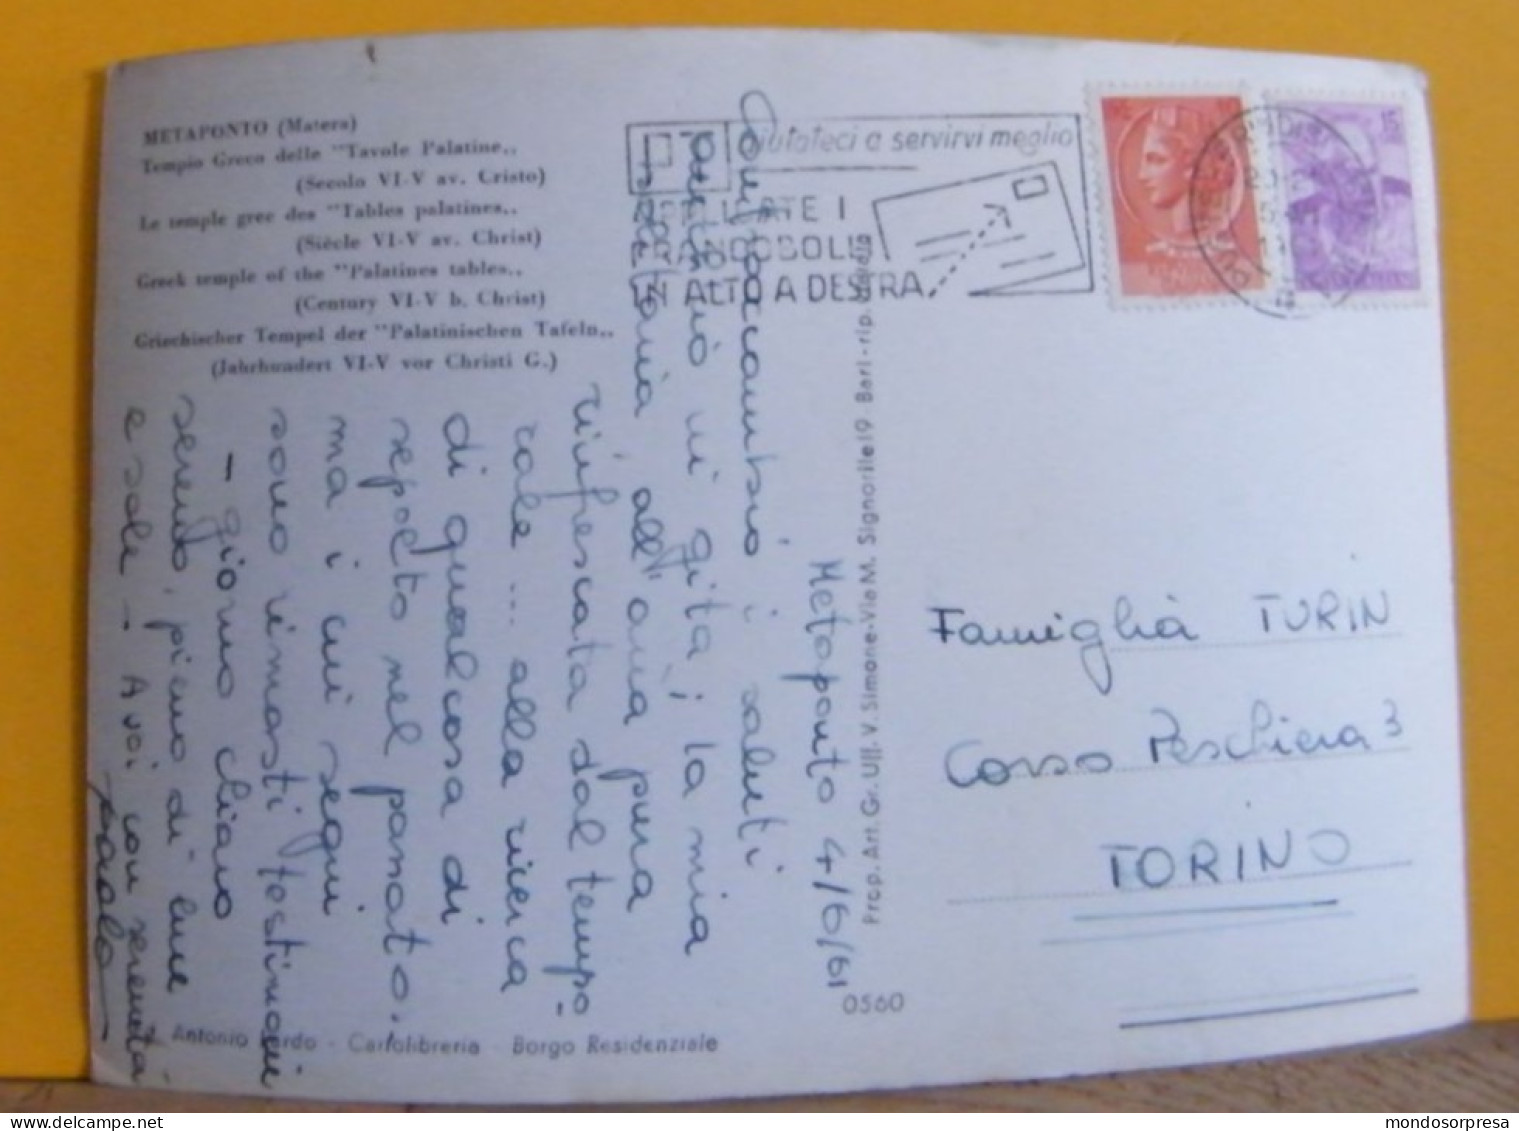 METAPONTO (Matera)
Tempio Greco delle "Tavole Palatine,,
(Secolo VI-V av. Cristo)
Le temple grec des "Tables palatines,,
(Siècle VI-V av. Christ)
Greek temple of the "Palatines tables,,
(Century VI-V b. Christ)
Griechischer Tempel der "Palatinischen Tafeln,,
(Jahrhundert VI-V vor Christi G.)
aiutateci a servirvi meglio
APPLICATE I
FRANCOBOLLI
IN ALTO A DESTRA
Metaponto 4/6/61
Contraccambio i saluti
in gita; la mia
all'aria pura
rinfrescata dal tempo-
rale ... alla ricerca
di qualcosa di
sepolto nel passato.
ma i cui segni
sono rimasti testimoni
- giorno chiaro
sereno, pieno di luce
e sole - A voi con serenità
Paolo
Prop. Art. Gr. Uff. V. Simone-Via M. Signorile 19 Bari - rip. vietata
Famiglia TURIN
Corso Peschiera 3
TORINO
0560
Antonio - Cartolibreria - Borgo Residenziale
mondosorpresa